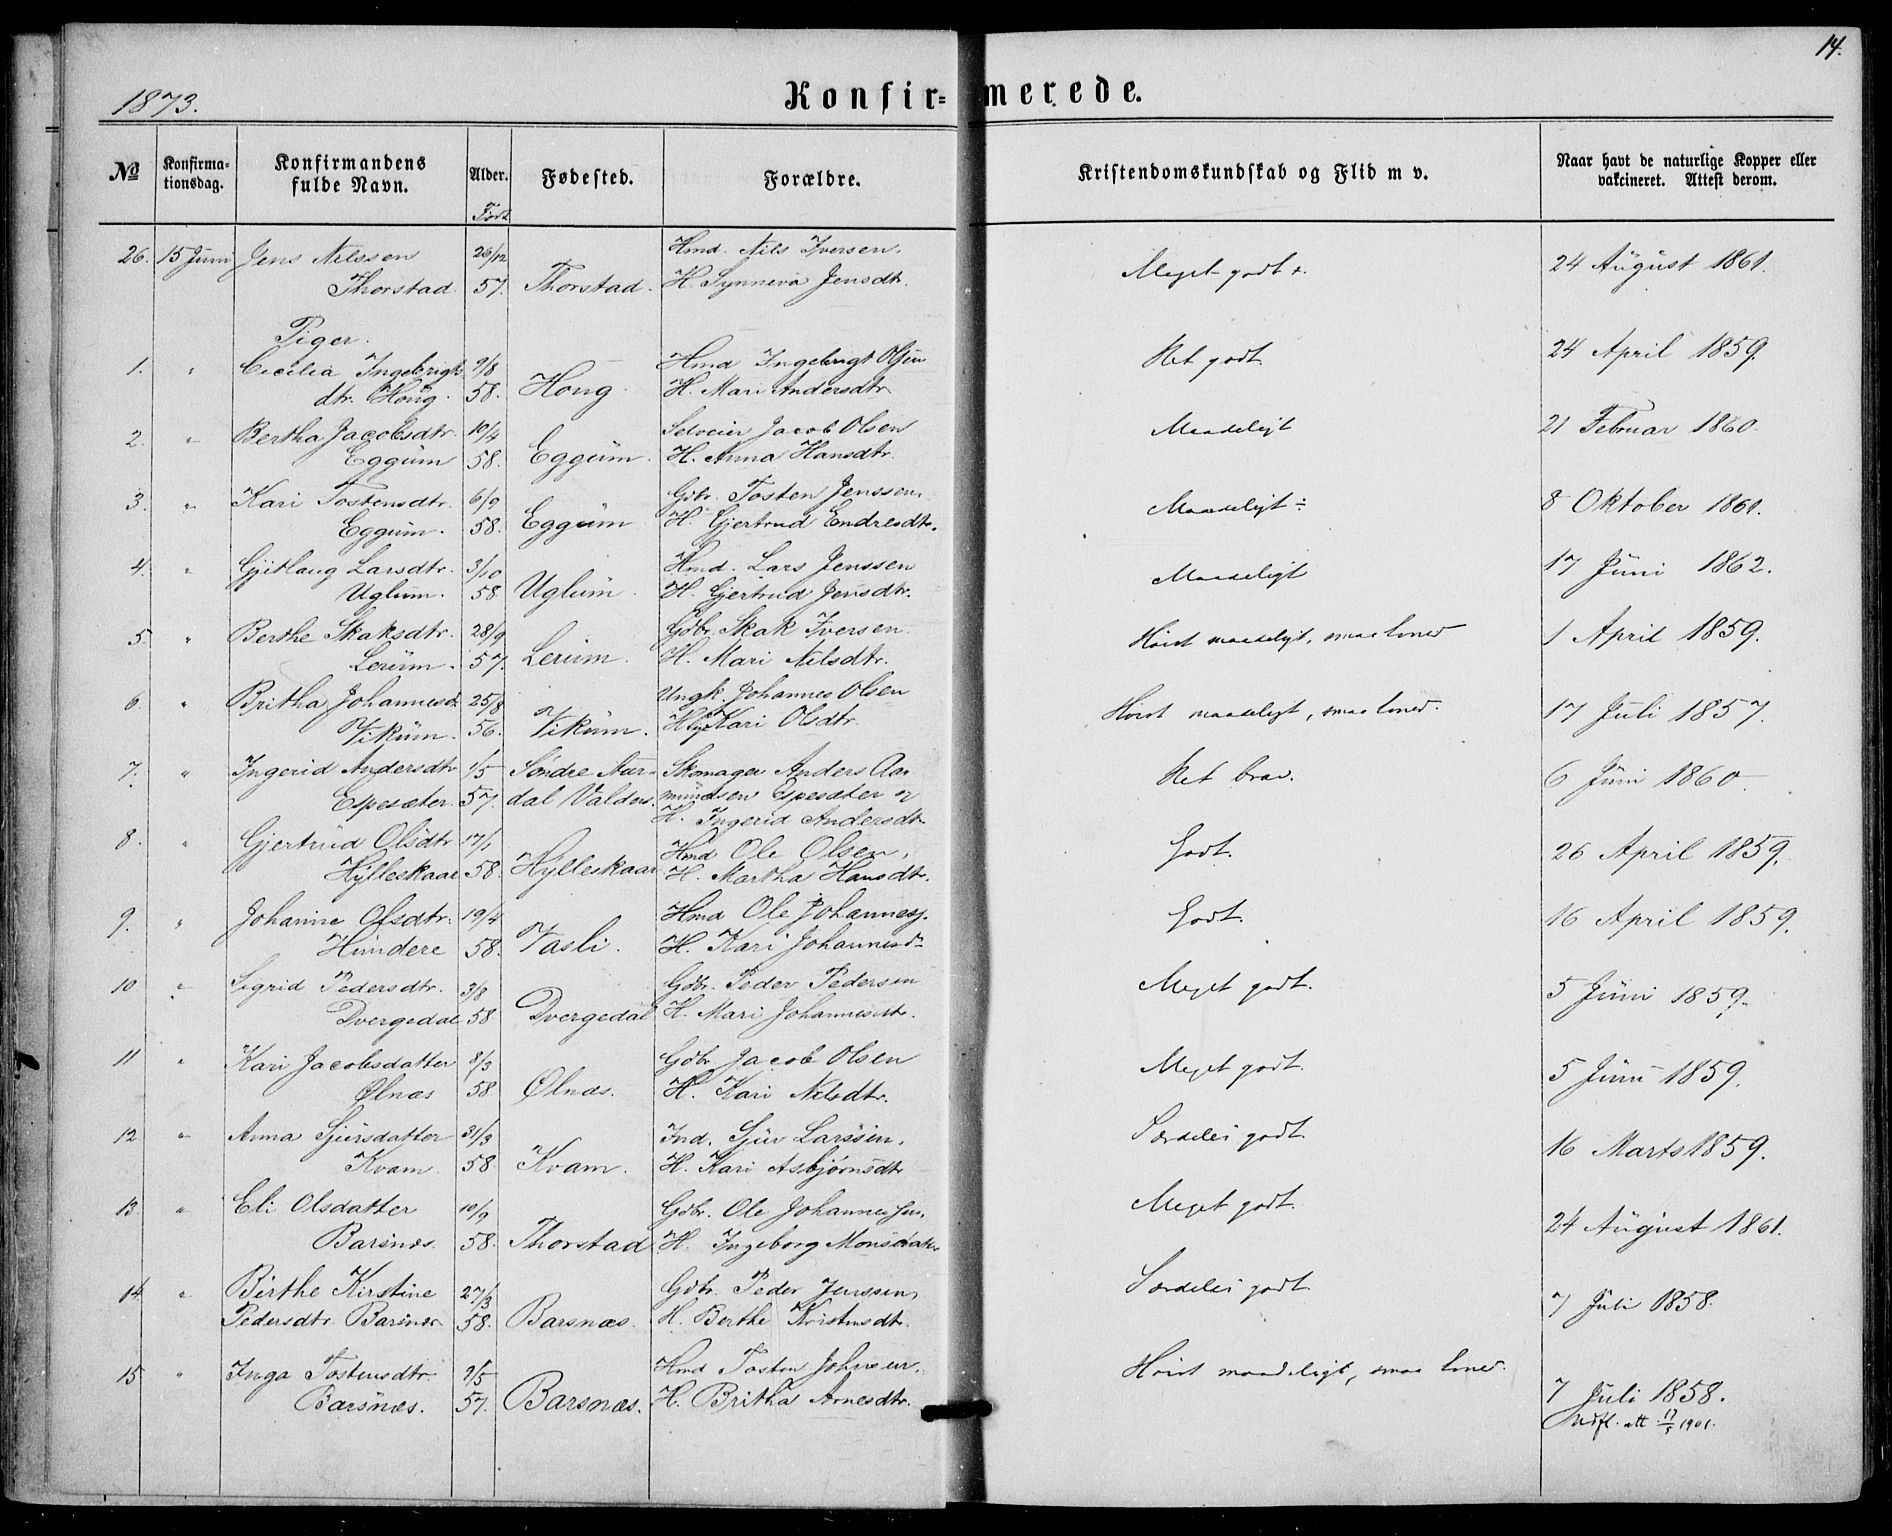 14.
1873.
Konfir= merede.
No
Konfirma=
tionsdag.
Konfirmandens
fulde Navn.
Alder.
Født
Fødested.
Forældre.
Kristendomskundskab og Flid m v.
Naar havt de naturlige Kopper eller
vakcineret. Attest derom.
26. 15 Juni Jens Nilssen 26/12 Hmd. Nils Iversen. Meget godt +. 24 August 1861.
Thorstad. 57. Thorstad. H. Synneva Jensdtr.
Piger.
1. " Cecilia Ingebrigts 9/8 Hmd Ingebrigt Olsen Ret godt. 24 April 1859.
dtr. Houg. 58. Houg. H. Mari Andersdtr
2. " Bertha Jacobsdtr. 10/4 Selveier Jacob Olsen Maadeligt 21 Februar 1860.
Eggum 58. Eggum. H. Anna Hansdtr.
3. " Kari Tostensdtr. 6/9 Gdbr. Tosten Jenssen. Maadeligt ÷ 8 Oktober 1861.
Eggum. 58. Eggum H. Gjertrud Endresdtr.
4. " Gjitlaug Larsdtr. 3/10 Hmd. Lars Jenssen Maadeligt 17 Juni 1862.
Uglum. 58 Uglum. H. Gjertrud Jensdtr.
5. " Berthe Skaksdtr. 28/9 Gdbr. Skak Iversen. Høist maadeligt, smaa Evner 1 April 1859.
Lerum. 57. Lerum. H. Mari Nilsdtr.
6. " Britha Johannesd. 25/8 Ungk. Johannes Olsen Høist maadeligt, smaa Evner. 17 Juli 1857.
Vikum. 56. Vikum. Kari Olsdtr
7. " Ingerid Andersdtr 1/5 Søndre Aur= Skomager Anders Aa= Ret brav. 6 Juni 1860.
Espesæter. 57. dal Valders. mundsen Espesæter og
H. Ingerid Andersdtr
8. " Gjertrud Olsdtr 17/1 Hmd Ole Olsen. Godt. 26 April 1859.
Hylleskaar 58. Hylleskaar H. Martha Hansdtr.
9. " Johanne Olsdtr. 19/4 Hmd Ole Johannes. Godt. 16 April 1859.
Hundere 58. Vasli. H. Kari Johannesd.
10 " Sigrid Pedersdtr. 3/8 Gdbr. Peder Pedersen Meget godt. 5 Juni 1859.
Dvergedal 58 Dvergedal H. Mari Johannesdtr.
11 " Kari Jacobsdatter 8/3 Gdbr Jacob Olsen Meget godt. 5 Juni 1859.
Ølnæs 58 Ølnæs. H. Kari Nilsdtr.
12 " Anna Sjursdatter 31/3 Ind. Sjur Larssen. Særdeles godt. 16 Marts 1859.
Kvam. 58. Kvam. H. Kari Asbjørnsdtr
13. " Eli Olsdatter 10/9 Gdbr. Ole Johannessen. Meget godt. 24 August 1861.
Barsnæs. 58. Thorstad H. Ingeborg Monsdatter
14. " Birthe Kirstine 27/3 Gdbr. Peder Jenssen. Særdeles godt. 7 Juli 1858.
Pedersdtr. Barsnæs 58. Barsnæs. H. Berthe Kristensdtr.
15 " Inga Tostensdtr. 9/5 Hmd Tosten Johnsen. Høist maadeligt, smaa Evner. 7 Juli 1858.
Barsnæs. 57. Barsnæs. H. Britha Arnesdtr. Udfl. att 17/5 1901.